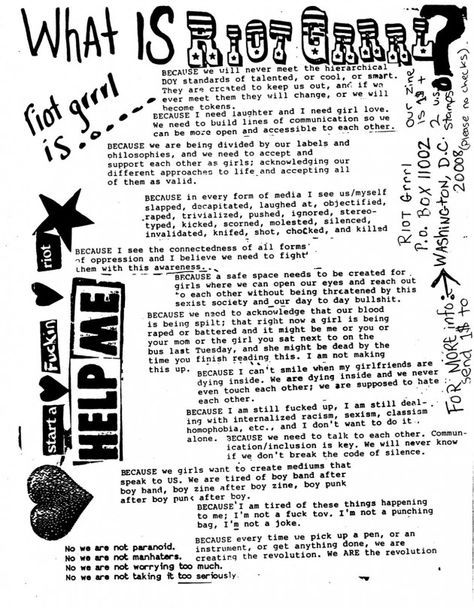 WHAT IS RIOT GRRRL?
riot grrrl
is......
BECAUSE we will never meet the hierarchical
BOY standards of talented, or cool, or smart.
They are created to keep us out, and if we
ever meet them they will change, or we will
become tokens.
BECAUSE I need laughter and I need girl love.
We need to build lines of communication so we
can be more open and accessible to each other.
BECAUSE we are being divided by our labels and
philosophies, and we need to accept and
support each other as girls; acknowledging our
different approaches to life and accepting all
of them as valid.
BECAUSE in every form of media I see us/myself
slapped, decapitated, laughed at, objectified,
raped, trivialized, pushed, ignored, stereo-
typed, kicked, scorned, molested, silenced,
invalidated, knifed, shot, chocked, and killed
BECAUSE I see the connectedness of all forms
of oppression and I believe we need to fight
them with this awareness...
BECAUSE a safe space needs to be created for
girls where we can open our eyes and reach out
to each other without being threatened by this
sexist society and our day to day bullshit.
BECAUSE we need to acknowledge that our blood
is being spilt; that right now a girl is being
raped or battered and it might be me or you or
your mom or the girl you sat next to on the
bus last Tuesday, and she might be dead by the
time you finish reading this. I am not making
this up.
BECAUSE I can't smile when my girlfriends are
dying inside. We are dying inside and we never
even touch each other; we are supposed to hate
each other.
BECAUSE I am still fucked up, I am still deal-
ing with internalized racism, sexism, classism
homophobia, etc., and I don't want to do it
alone.
BECAUSE we need to talk to each other. Commun-
ication/inclusion is key. We will never know
if we don't break the code of silence.
BECAUSE we girls want to create mediums that
speak to US. We are tired of boy band after
boy band, boy zine after boy zine, boy punk
after boy punk after boy.
BECAUSE I am tired of these things happening
to me; I'm not a fuck toy. I'm not a punching
bag, I'm not a joke.
BECAUSE every time we pick up a pen, or an
instrument, or get anything done, we are
creating the revolution. We ARE the revolution
No we are not paranoid.
No we are not manhaters.
No we are not worrying too much.
No we are not taking it too seriously.
start a
Fuckin
riot
HELP ME
FOR MORE info:
send 1$ to
RIOT Grrrl
P.O. BOX 11002
WASHINGTON, D.C.
20008
OUR zine
is 1$ +
2 us
stamps
(please no checks)